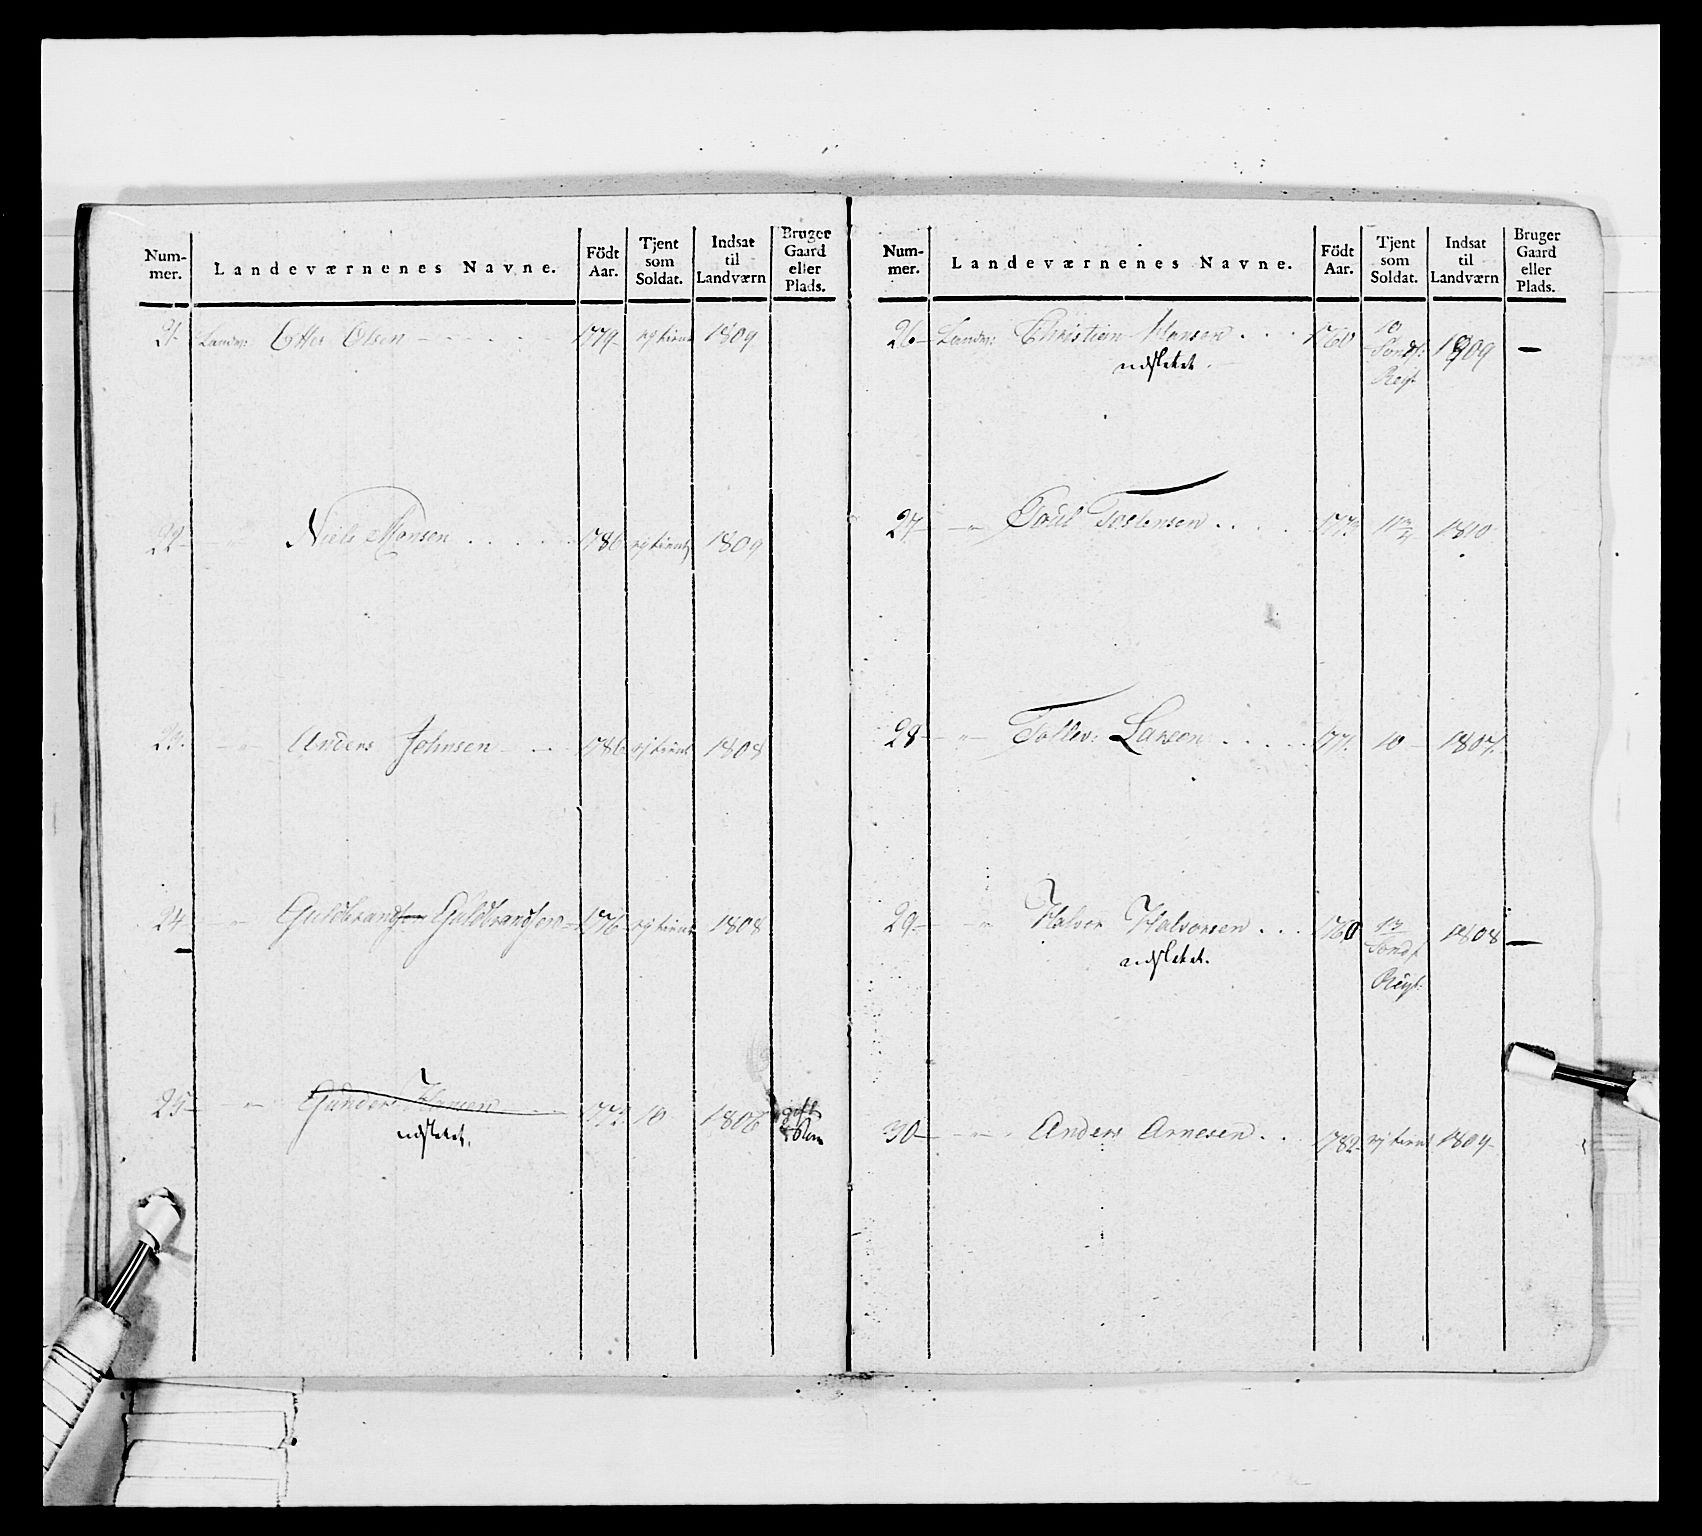 Num-
mer.
Landeværnenes Navne.
Födt
Aar.
Tjent
som
Soldat.
Indsat
til
Landværn
Bruger
Gaard
eller
Plads.
21 Landv: Otter Olsen 1779 ej tient 1809
22 Niels Monsen 1786 ej tient 1809
23. " Anders Johnsen 1786 ej tient 1808
24 " Guldbrandsen Guldbrandsen 1776 ej tient 1808
25 " Gunder Hansen 1772 10 1806
udslettet.
Num-
mer.
Landeværnenes Navne.
Födt
Aar.
Tjent
som
Soldat.
Indsat
til
Landværn
Bruger
Gaard
eller
Plads.
26 Landv: Christian Hansen 1760 10 Sondf: Regt 1809 —
udslettet.
27 " Poul Tostensen 1773 1810
28 " Tollev: Larsen 1771. 10 1807.
29 " Halvor Halvorsen 1760 13 Sondf Regt: 1808 —
udslettet.
30 " Anders Arnesen 1782 ej tient 1809